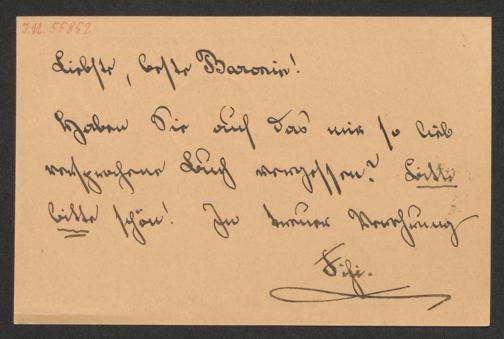 I.N. 55852
Liebste, beste Baronin!
Haben Sie auf das mir so lieb
versprochene Buch vergessen? Bitte
bitte schön! In treuer Verehrung
Fifi.